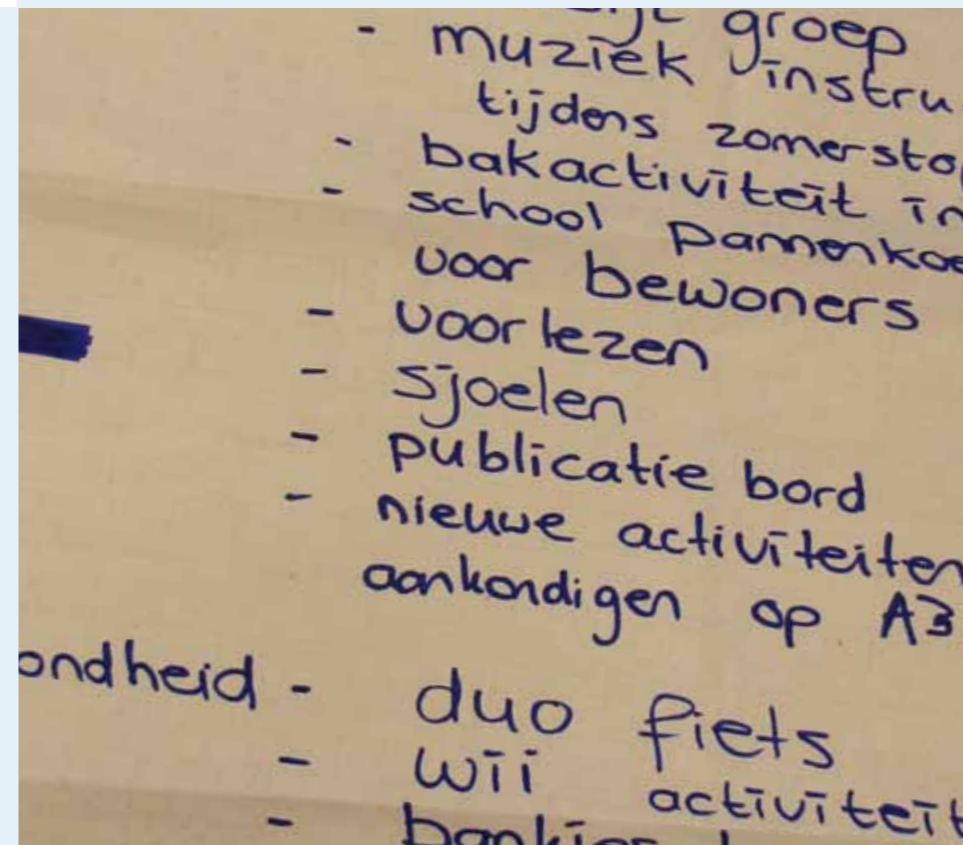 groep
- muziek instru
tijdens zomersto
- bakactiviteit in
- school pannenkoe
voor bewoners
- voorlezen
- sjoelen
- publicatie bord
- nieuwe activiteiten
aankondigen op A3
ondheid - duo fiets
- wii activiteit
- bankjes